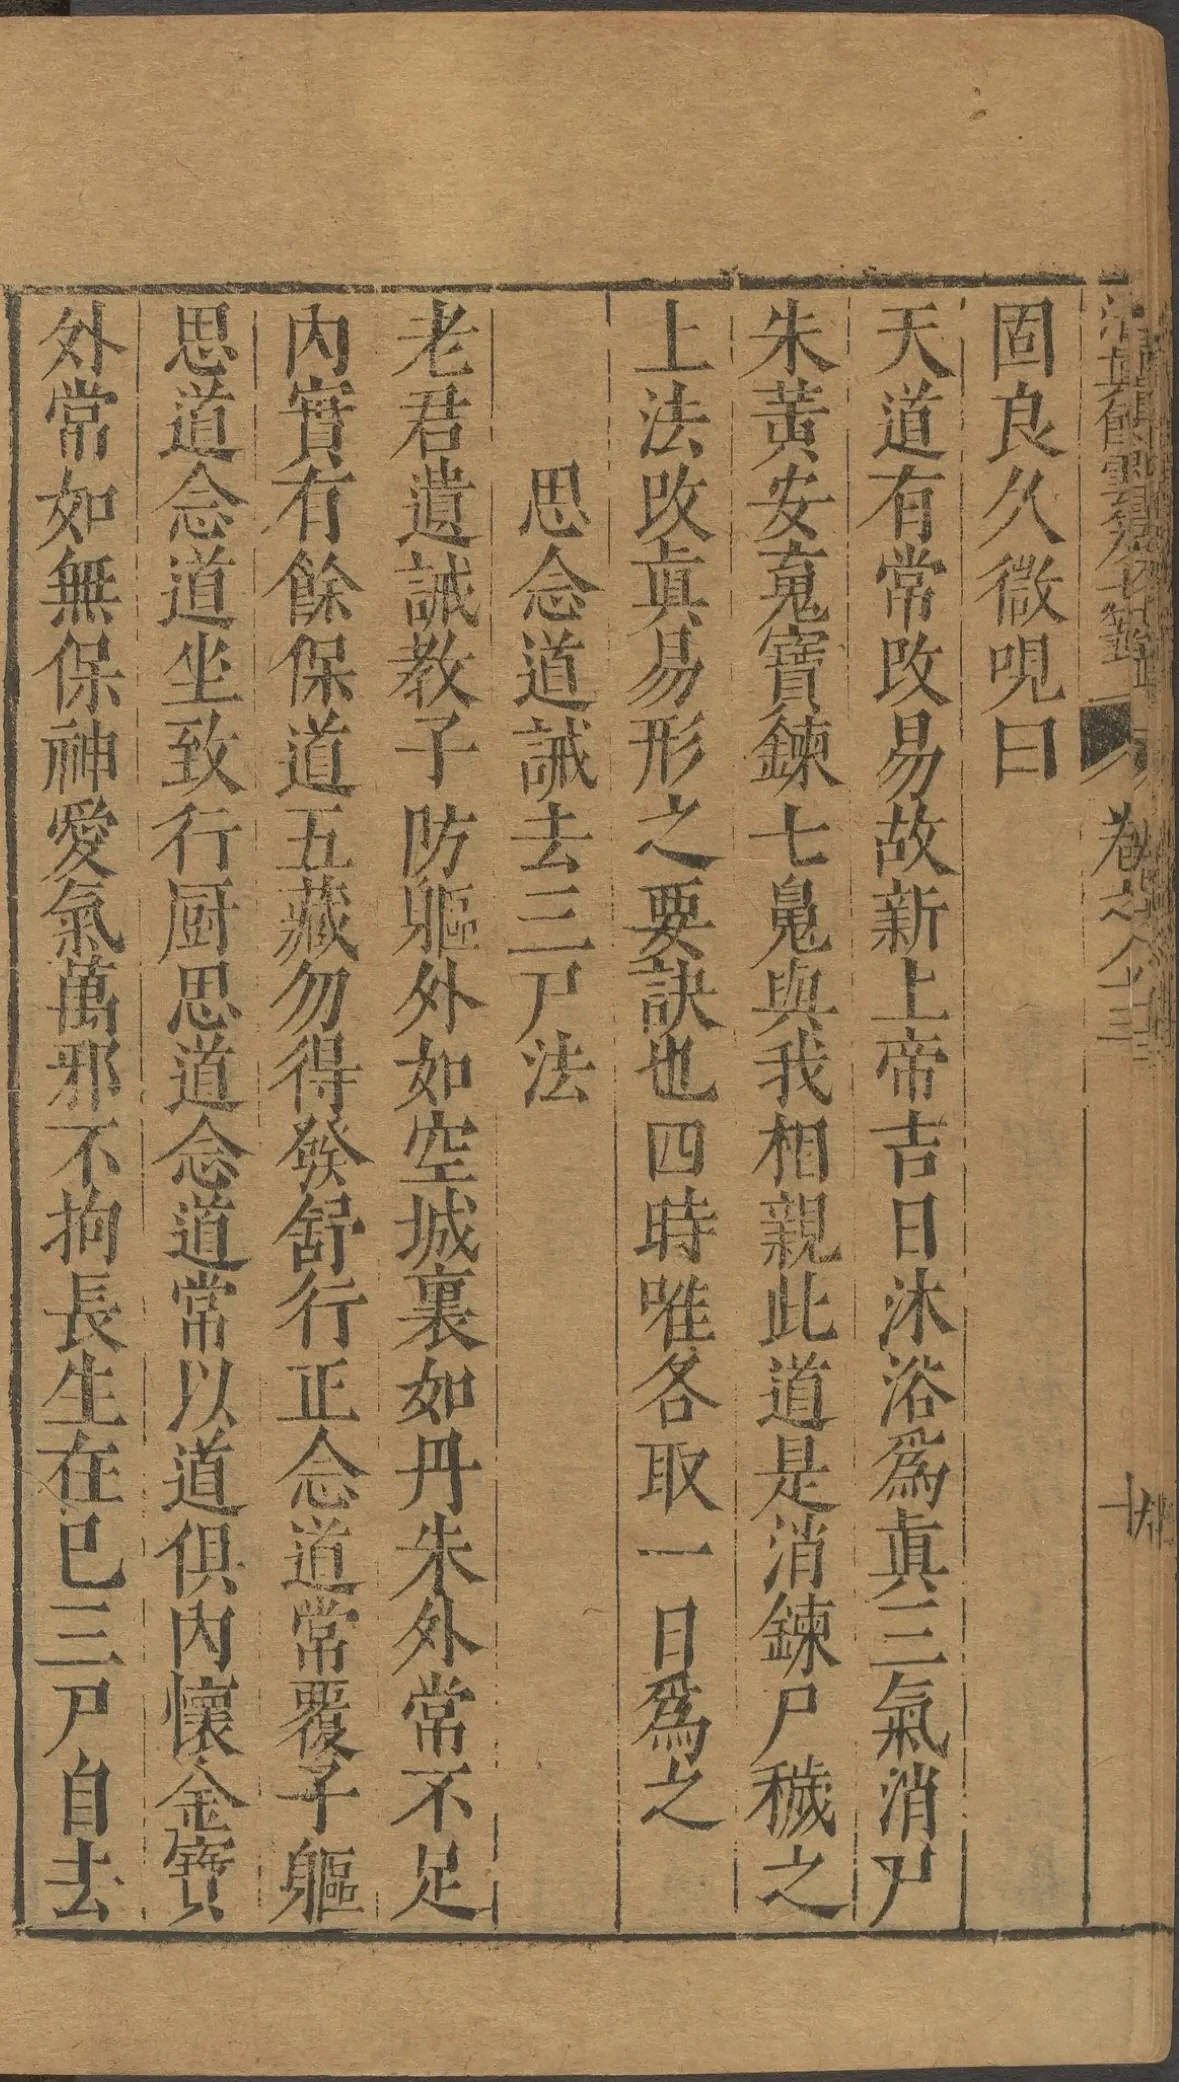 卷之八十三
十
固良久微呪曰
天道有常改易故新上帝吉日沐浴爲眞三氣消尸
朱黃安䰟寶鍊七䰠與我相親此道是消鍊尸穢之
上法改眞易形之要訣也四時唯各取一日爲之
思念道誡去三尸法
老君遺誡教子防軀外如空城裏如丹朱外常不足
內實有餘保道五藏勿得發舒行正念道常覆子軀
思道念道坐致行厨思道念道常以道俱內懷金寶
外常如無保神愛氣萬邪不拘長生在已三尸自去